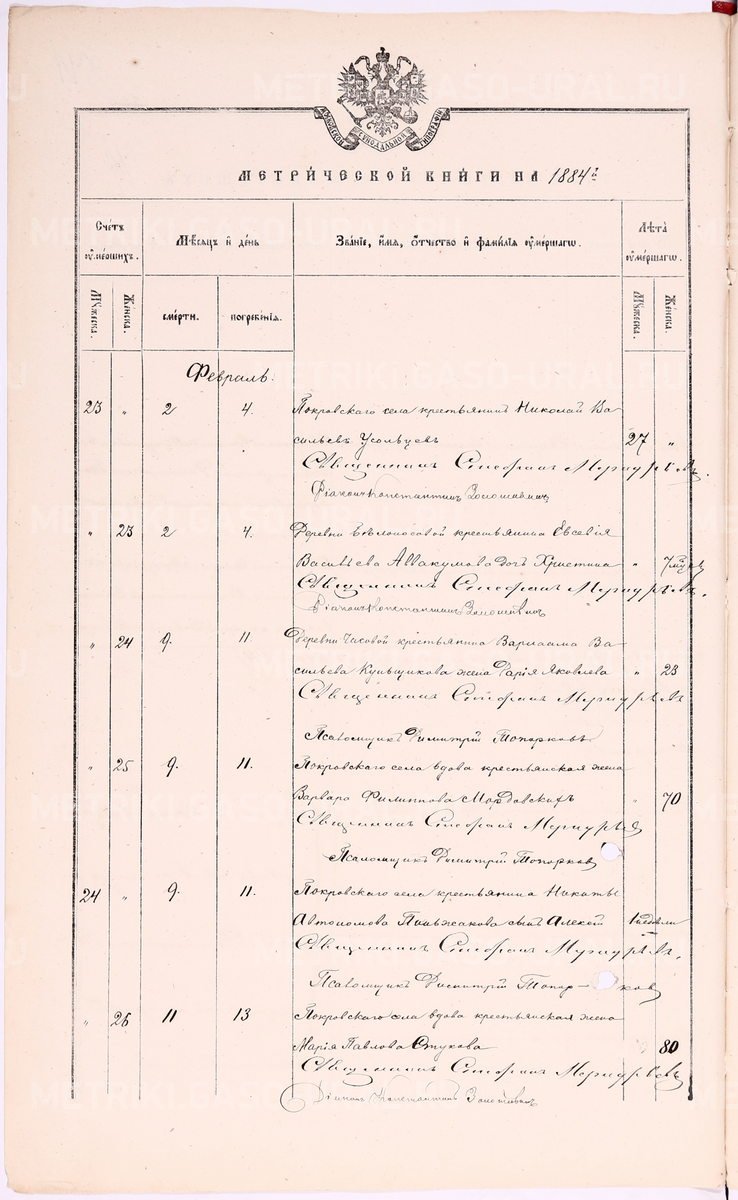 МОСКОВСКОЙ СѴНОДАЛЬНОЙ ТИПОГРАФІИ
МЕТРИ́ЧЕСКОЙ КНИ́ГИ НА 1884й
Сче́тъ оу҆ме́ршихъ.
Мѣ́сяцъ и҆ де́нь
Зва́нїе, и҆́мя, ѻ҆́тчество и҆ фамилїя оу҆ме́ршагѡ.
Лѣ́та оу҆ме́ршагѡ.
Мꙋ́жеска.
Же́нска.
сме́рти.
погребе́нїя.
Мꙋ́жеска.
Же́нска.
Февраль.
23 „ 2 4. Покровскаго села крестьянинъ Николай Ва
сильевъ Усольцевъ 27 „
Священникъ Стефанъ Меркурьевъ.
Діаконъ Константинъ
„ 23 2 4. Деревни Бѣлоносовой крестьянина Евсевія
Васильева Аввакумова дочь Христина „ 7
Священникъ Стефанъ Меркурьевъ.
Діаконъ Константинъ
„ 24 9. 11. Деревни Часовой крестьянина Варлаама Ва
сильева жена Марія Яковлева „ 23
Священникъ Стефанъ Меркурьевъ
Псаломщикъ Димитрій Топорковъ
„ 25 9. 11. Покровскаго села вдова крестьянская жена
Варвара Филиппова Мордовскихъ „ 70
Священникъ Стефанъ Меркурье
Псаломщикъ Димитрій Топорков
24 „ 9. 11. Покровскаго села крестьянина Никиты
Автономова Пиньжакова сынъ Алексій 1 недѣли
Священникъ Стефанъ Меркурьевъ.
Псаломщикъ Димитрій Топор- ковъ
„ 26 11 13 Покровскаго села вдова крестьянская жена
Марія Павлова Стукова 80
Священникъ Стефанъ Меркурьевъ
Діаконъ Константинъ